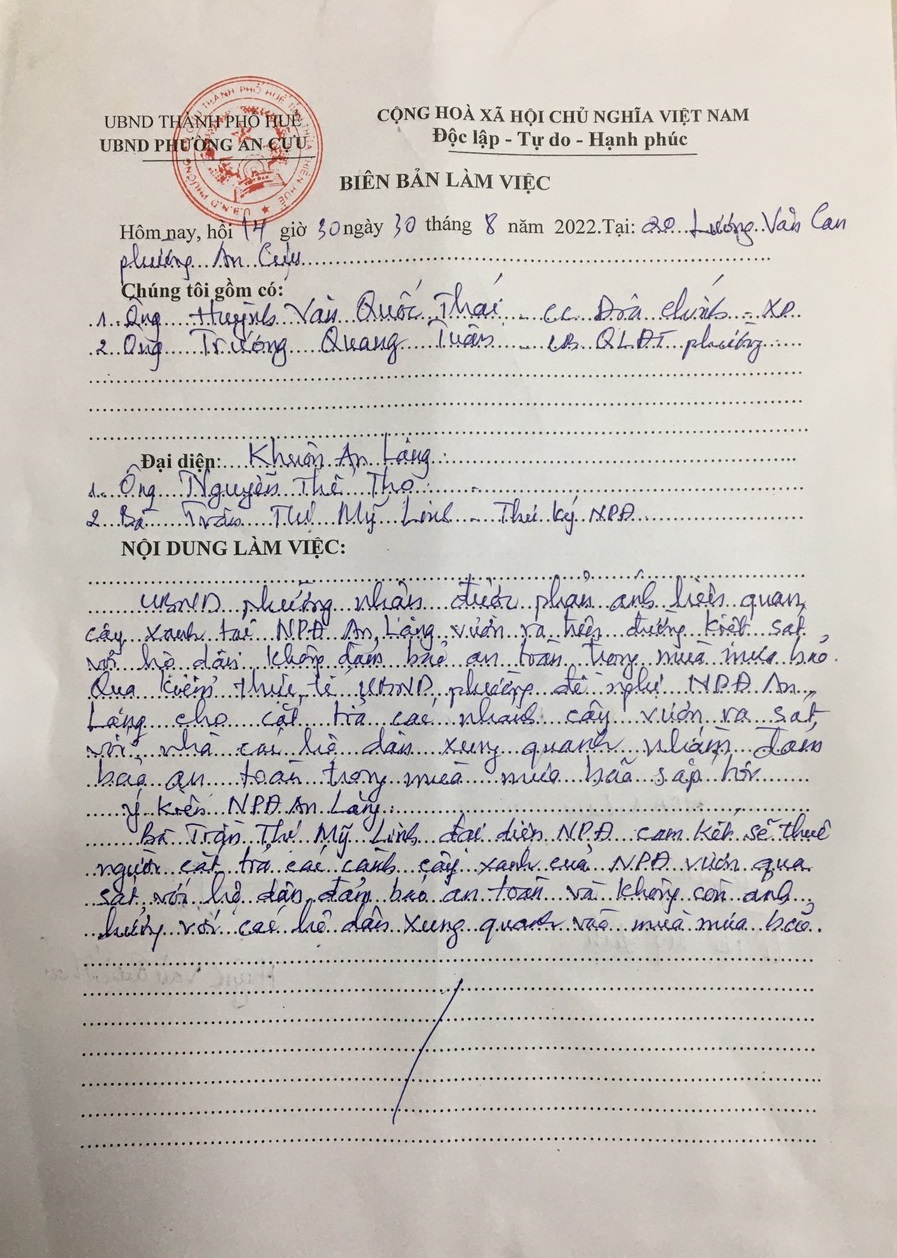 UBND THÀNH PHỐ HUẾ
UBND PHƯỜNG AN CỰU
CỘNG HOÀ XÃ HỘI CHỦ NGHĨA VIỆT NAM
Độc lập - Tự do - Hạnh phúc
BIÊN BẢN LÀM VIỆC
Hôm nay, hồi 14 giờ 30 ngày 30 tháng 8 năm 2022.Tại: 20 Lương Văn Can
phường An Cựu
Chúng tôi gồm có:
1. Ông Huỳnh Văn Quốc Thái - CC Địa chính - XD
2. Ông Trương Quang Tuấn - CB QLĐT phường
Đại diện: Khuôn An Lăng
1. Ông Nguyễn Thế Thọ
2. Bà Trần Thị Mỹ Linh - Thư ký NPĐ
NỘI DUNG LÀM VIỆC:
UBND phường nhận được phản ánh liên quan
cây xanh tại NPĐ An Lăng vươn ra trên đường kiệt sát
với hộ dân không đảm bảo an toàn trong mùa mưa bão.
Qua kiểm thực tế UBND phường đề nghị NPĐ An
Lăng cho cắt tỉa các nhánh cây vươn ra sát
với nhà các hộ dân xung quanh nhằm đảm
bảo an toàn trong mùa mưa bão sắp tới.
Ý kiến NPĐ An Lăng:
Bà Trần Thị Mỹ Linh đại diện NPĐ cam kết sẽ thuê
người cắt tỉa các cành cây xanh của NPĐ vươn qua
sát với hộ dân đảm bảo an toàn và không còn ảnh
hưởng với các hộ dân xung quanh vào mùa mưa bão.